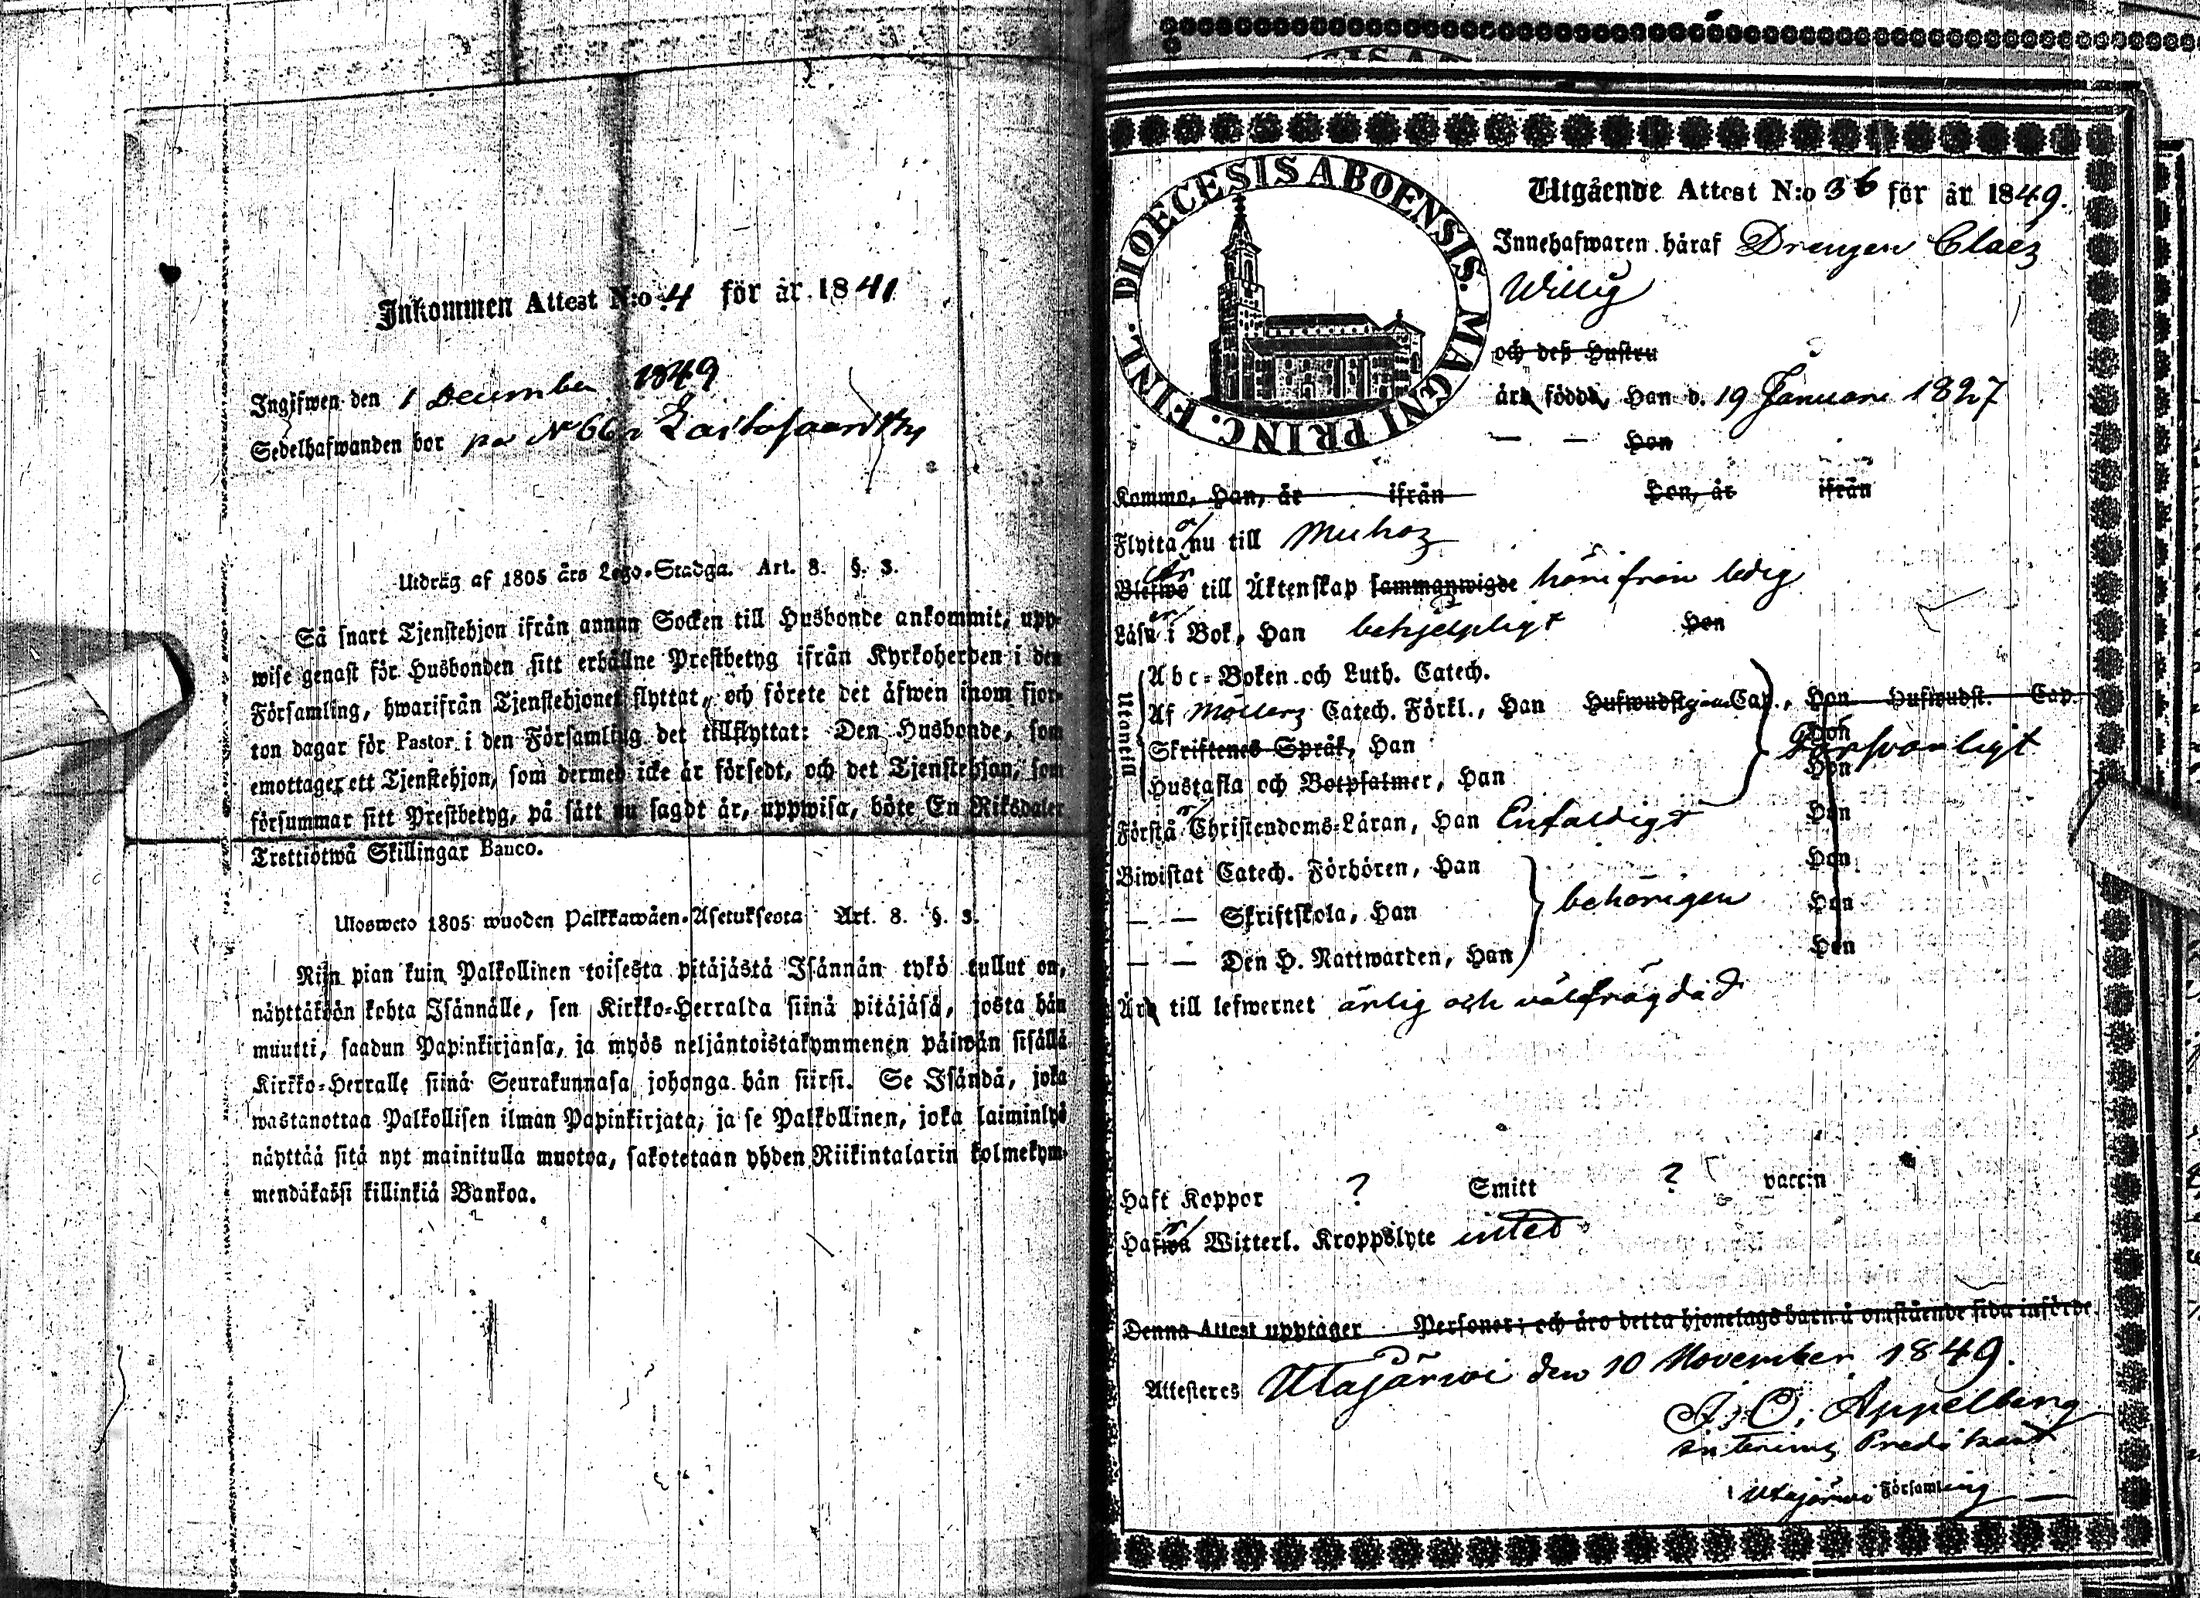 Inkommen Attest N:o 4 för år 1841
Ingifwen den 1 December 1849
Sedelhafwanden bor på N 66
Utdrag af 1805 års Lego-Stadga. Art. 8. §. 3.
Så snart Tjenstehjon ifrån annan Socken till Husbonde ankommit, upp-
wise genast för Husbonden sitt erhållne Prestbetyg ifrån Kyrkoherden i den
Församling, hwarifrån Tjenstehjonet flyttat, och förete det äfwen inom fjor-
ton dagar för Pastor i den Församling det tillflyttat: Den Husbonde, som
emottager ett Tjenstehjon, som dermed icke är försedt, och det Tjenstehjon, som
försummar sitt Prestbetyg, på sätt nu sagdt är, uppwisa, böte En Riksdaler
Trettiotwå Skillingar Banco.
Ulosweto 1805 wuoden Palkkawäen-Asetuksesta Art. 8. §. 3.
Niin pian kuin Palkollinen toisesta pitäjästä Isännän tykö tullut on,
näyttäköön kohta Isännälle, sen Kirkko-Herralda siinä pitäjäsä, josta hän
muutti, saadun Papinkirjansa, ja myös neljäntoistakymmenen päiwän sisällä
Kirkko-Herralle siinä Seurakunnasa johonga hän siirsi. Se Isändä, joka
wastanottaa Palkollisen ilman Papinkirjata, ja se Palkollinen, joka laiminlyö
näyttää sitä nyt mainitulla muotoa, sakotetaan yhden Riikintalarin kolmekym-
mendäkaksi killinkiä Bankoa.
DIOECESIS ABOENSIS. MAGNI PRINC. FINL.
Utgående Attest N:o 36 för år 1849.
Innehafwaren häraf Drengen Claës
Willig
och deß Hustru
äro födde, Han d. 19 Januari 1827
— — Hon
Kommo, Han, år ifrån Hon, år ifrån
Flytta nu till Muhos
Blefwo till Äktenskap sammanwigde härifrån ledig
Läsa i Bok, Han behjelpligt Hon
Utantill
Abc-Boken och Luth. Catech.
Af Möllers Catech. Förkl., Han Hufwudst. Cap., Hon Hufwudst. Cap.
Skriftenes Språk, Han Hon försvarligt
Hustafla och Botpsalmer, Han Hon
Förstå Christendoms-Läran, Han Enfaldigt Hon
Biwistat Catech. Förhören, Han Hon
— — Skriftskola, Han behörigen Hon
— — Den H. Nattwarden, Han Hon
Äro till lefwernet ärlig och välfrägdad
Haft Koppor ? Smitt ? vaccin
Hafwa Witterl. Kroppslyte intet
Denna Attest upptager Personer; och äro detta hjonelags barn å omstående sida införde.
Attesteres Utajärwi den 10 November 1849.
J. O. Appelberg
interims Predikant
i Utajärwi Församling